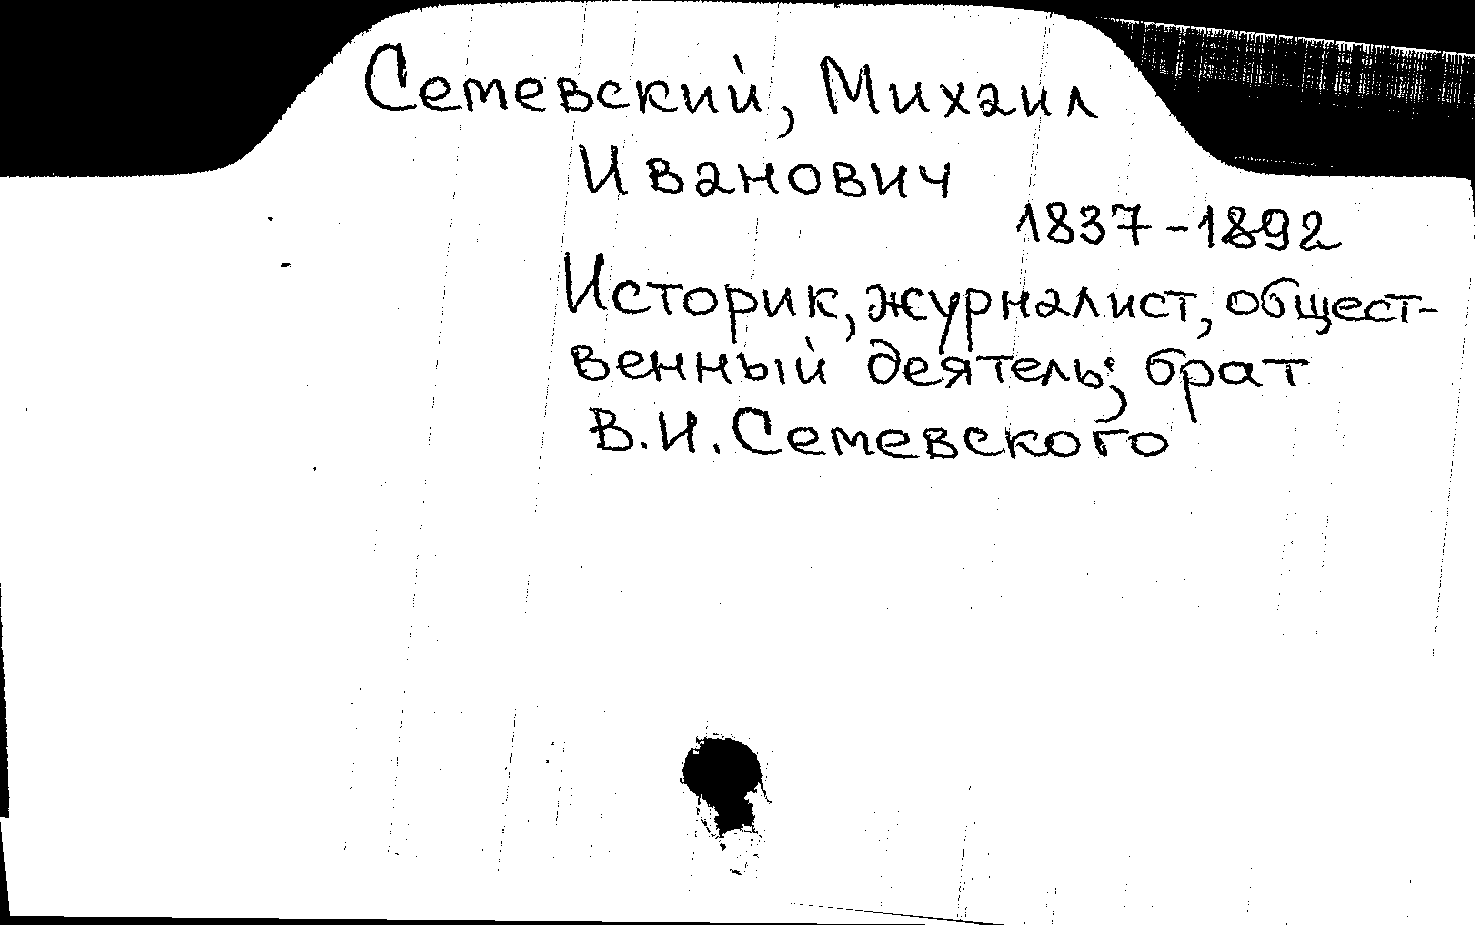 Семевский, Михаил
Иванович
1837-1892
Историк, журналист, общест-
венный деятель; брат
В.И. Семевского